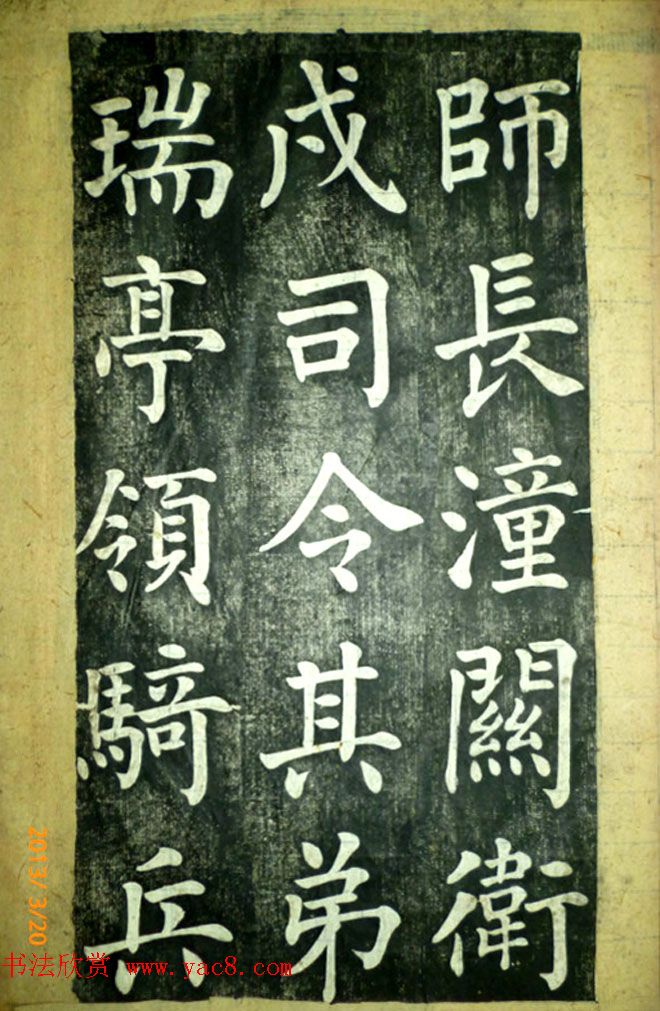 師長潼關衛
戍司令其弟
瑞亭領騎兵
2013/ 3/20
书法欣赏 www.yac8.com